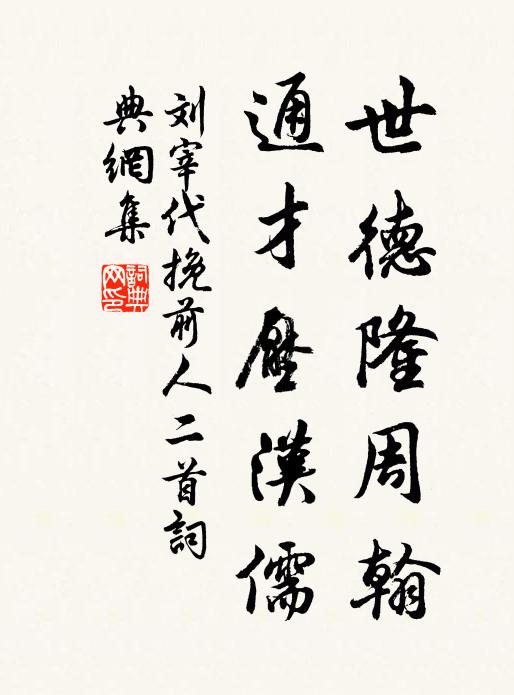 世德隆周翰
通才壓漢儒
刘宰代挽前人二首詞
典網集
詞典网印